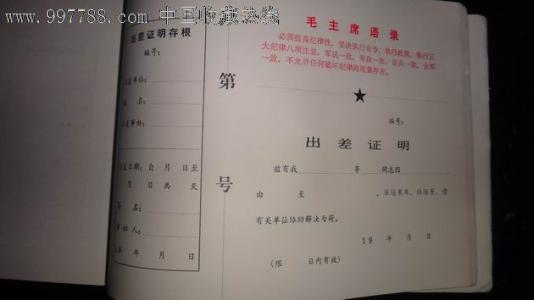 www.997788.com 中国收藏热线
出差证明存根
编号:
出差单位:
姓名:
出差事由:
出差日期:自 月 日至
月 日共 天
签名:
审批人:
19 年 月 日
第
号
毛主席语录
必须提高纪律性,坚决执行命令,执行政策,执行三
大纪律八项注意,军民一致,军政一致,官兵一致,全军
一致,不允许任何破坏纪律的现象存在。
编号:
出差证明
兹有我 等 同志因
由 至 ,
有关单位协助解决为荷。
19 年 月 日
(限 日内有效)